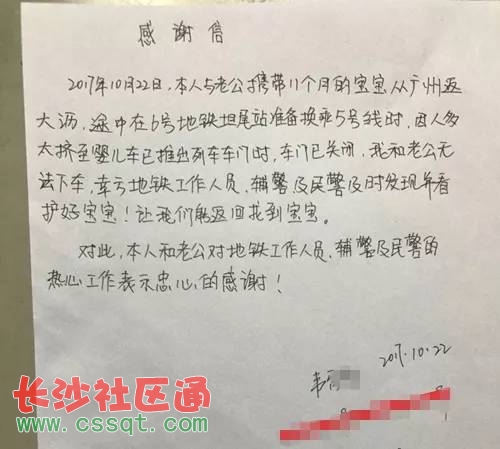 感谢信
2017年10月22日，本人与老公携带11个月的宝宝从广州返
大沥，途中在6号地铁坦尾站准备换乘5号线时，因人多
太挤至婴儿车已推出列车车门时，车门已关闭，我和老公无
法下车，幸亏地铁工作人员、辅警及民警及时发现并看
护好宝宝！让我们能返回找到宝宝。
对此，本人和老公对地铁工作人员、辅警及民警的
热心工作表示忠心的感谢！
2017.10.22
韦
长沙社区通
www.cssqt.com